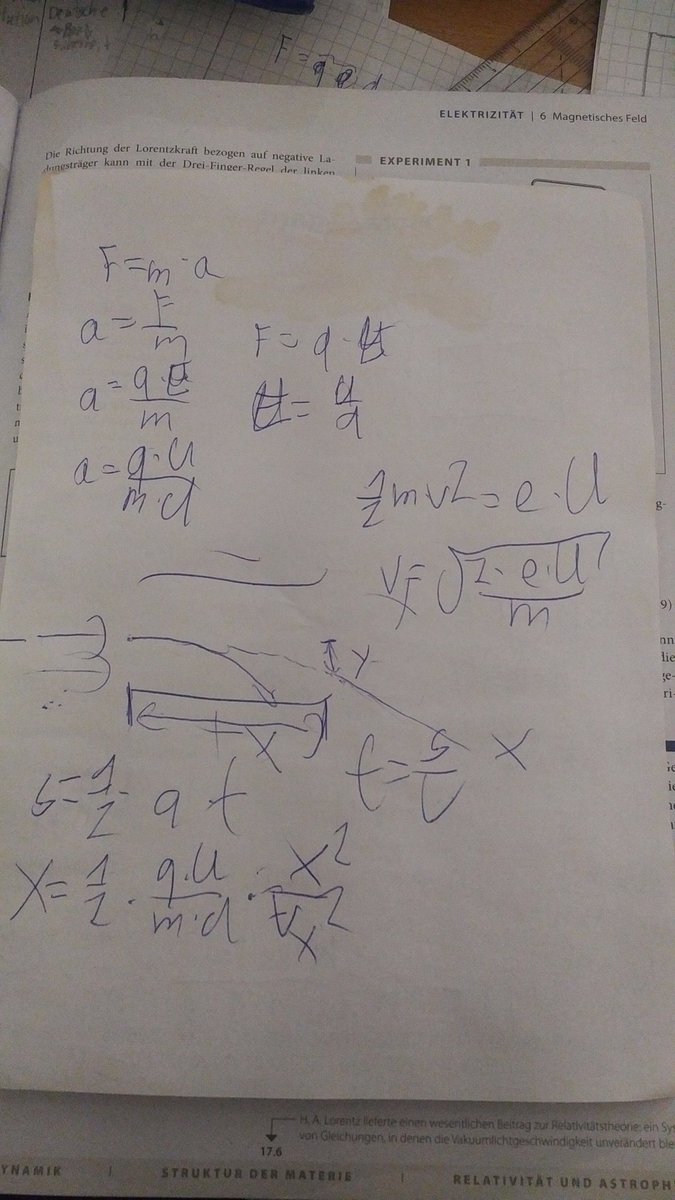 Deutsche
F =
ELEKTRIZITÄT | 6 Magnetisches Feld
Die Richtung der Lorentzkraft bezogen auf negative La-
dungsträger kann mit der Drei-Finger-Regel der linken
EXPERIMENT 1
F = m · a
a = F/m
F = q · E
a = q·E/m
E = U/d
a = q·U/m·d
1/2 mv2 = e·U
vx = √2·e·U/m
Y
X
t = s/v
X
s = 1/2 a t
X = 1/2 · q·U/m·d · X2/vx2
9)
H. A. Lorentz lieferte einen wesentlichen Beitrag zur Relativitätstheorie: ein Sy
von Gleichungen, in denen die Vakuumlichtgeschwindigkeit unverändert ble
17.6
YNAMIK | STRUKTUR DER MATERIE | RELATIVITÄT UND ASTROPH